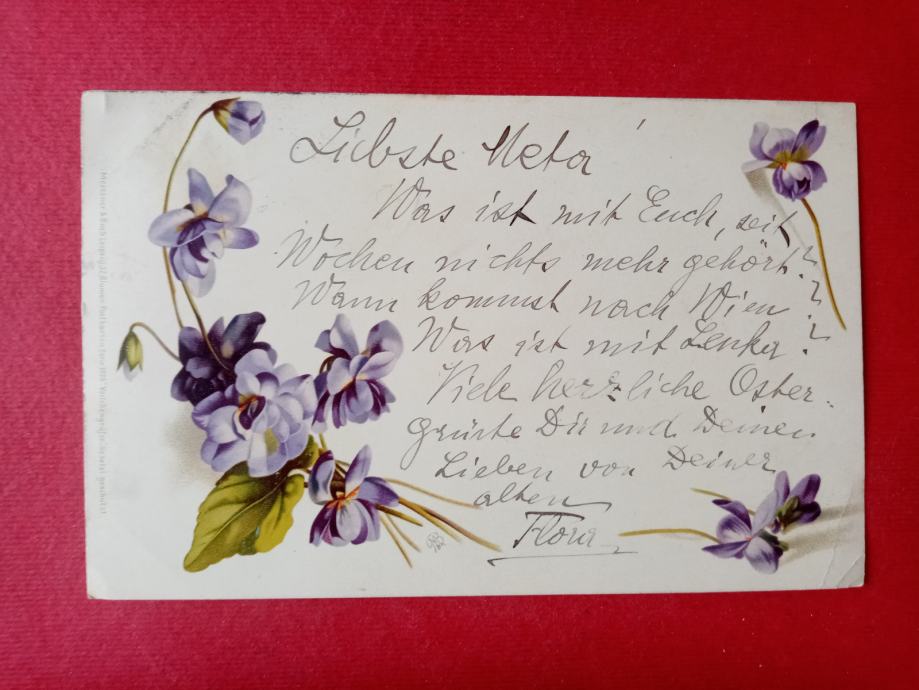 Liebste Meta!
Was ist mit Euch, seit
Wochen nichts mehr gehört?
Wann kommst nach Wien?
Was ist mit Lenka?
Viele herzliche Oster-
grüsse Dir und Deinen
Lieben von Deiner
alten
Flora